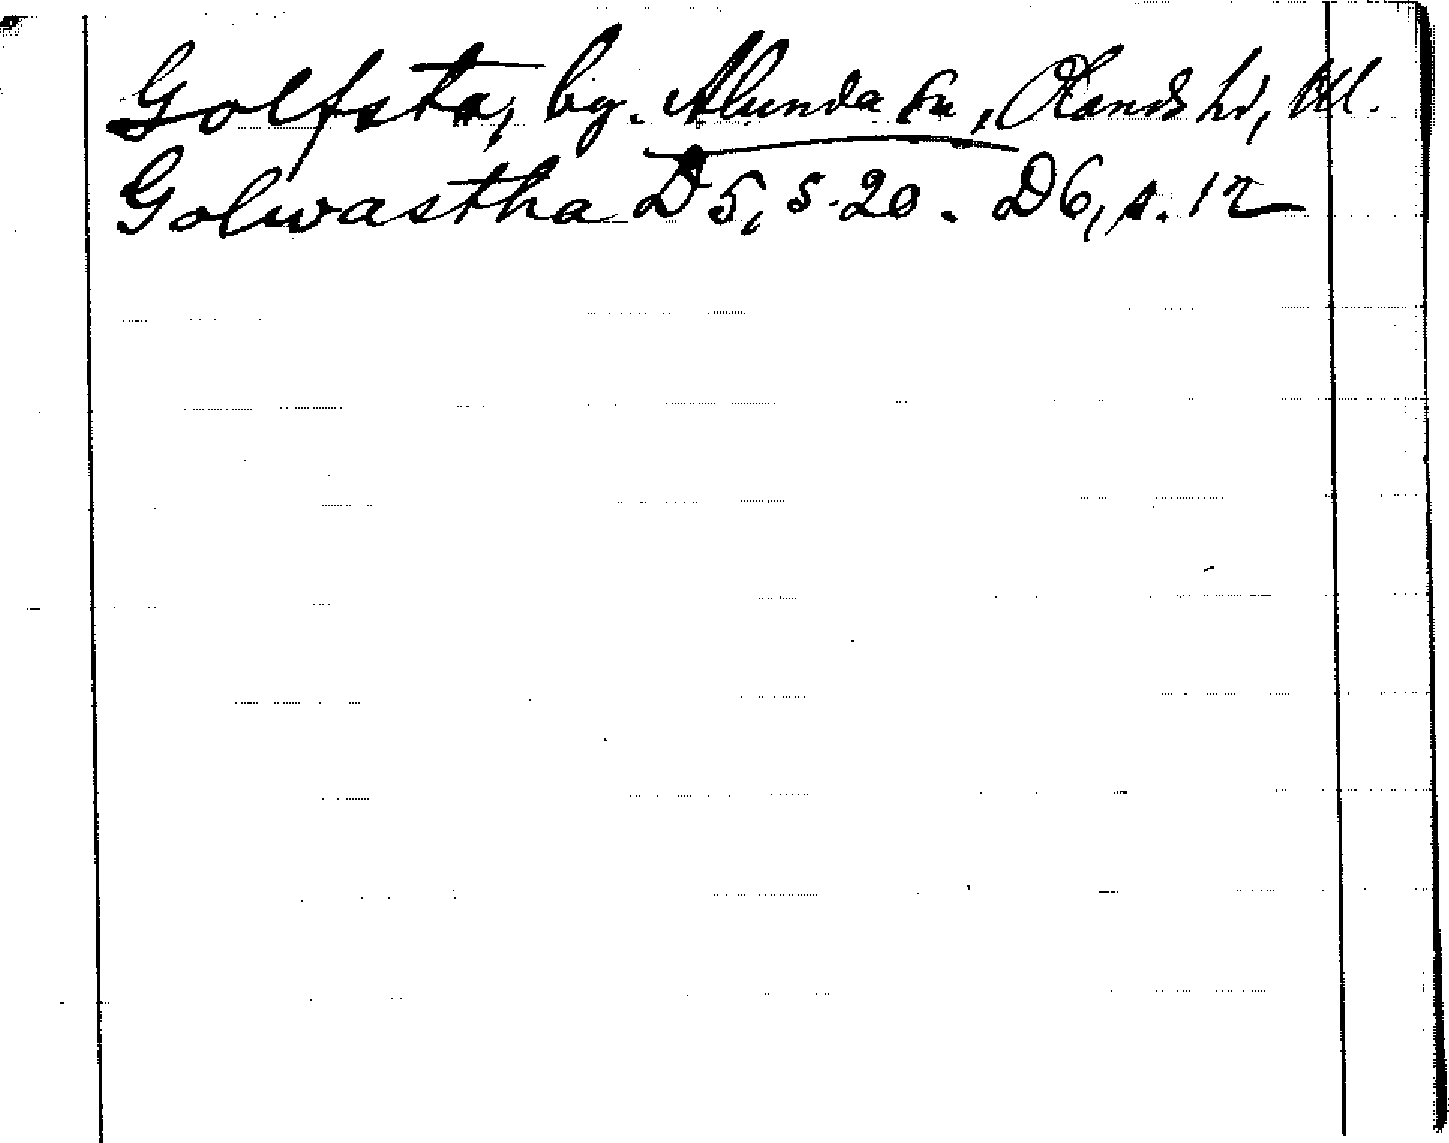 Golfsta, by. Alunda sn, Olands hd, Ul.
Golwastha D 5, s. 20. D6, s. 12